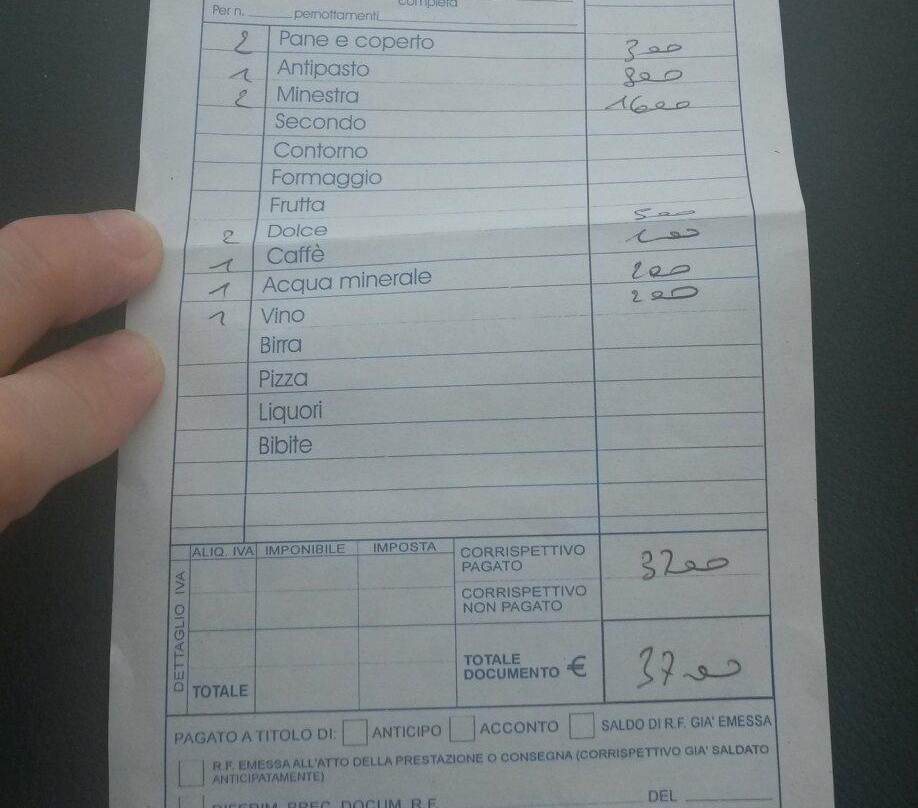 completa
Per n. pernottamenti
2 Pane e coperto 300
1 Antipasto 800
2 Minestra 1600
Secondo
Contorno
Formaggio
Frutta
2 Dolce 500
1 Caffè 100
1 Acqua minerale 200
1 Vino 200
Birra
Pizza
Liquori
Bibite
DETTAGLIO IVA
ALIQ. IVA IMPONIBILE IMPOSTA CORRISPETTIVO PAGATO 3700
CORRISPETTIVO NON PAGATO
TOTALE TOTALE DOCUMENTO € 3700
PAGATO A TITOLO DI: ANTICIPO ACCONTO SALDO DI R.F. GIA' EMESSA
R.F. EMESSA ALL'ATTO DELLA PRESTAZIONE O CONSEGNA (CORRISPETTIVO GIA' SALDATO
ANTICIPATAMENTE)
RIFERIM. PREC. DOCUM. R.F. DEL